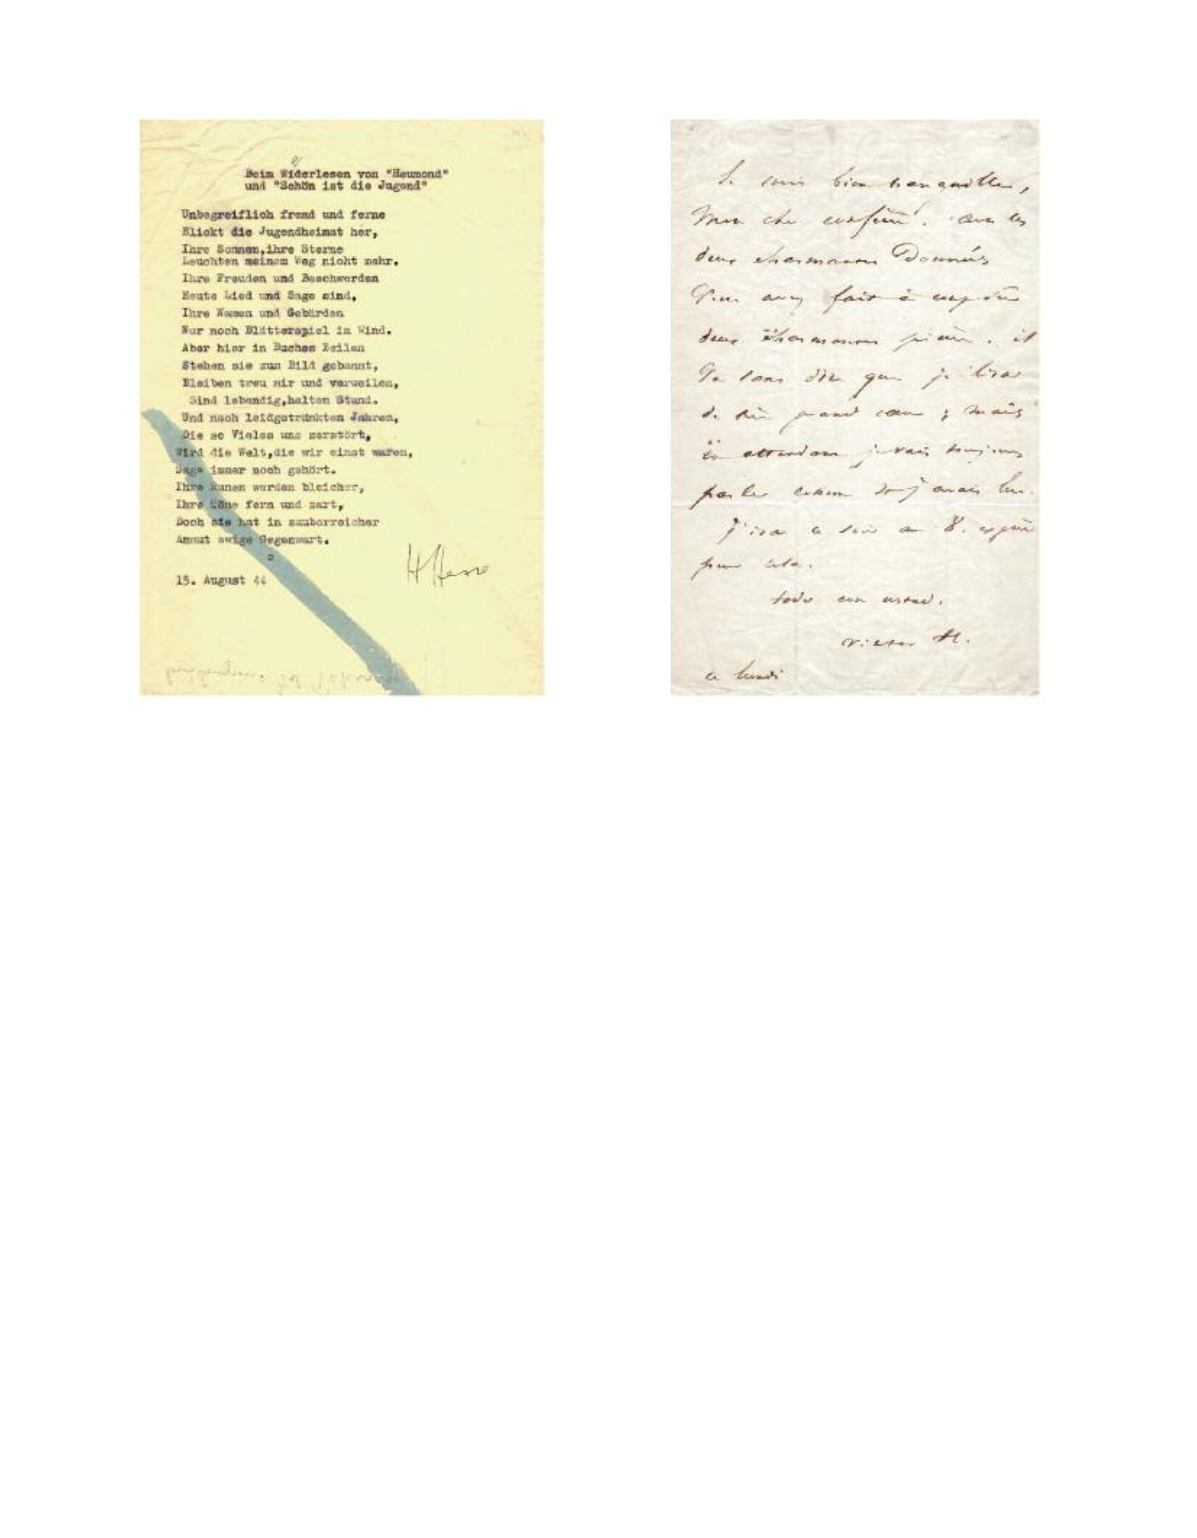 Beim Widerlesen von "Heumond"
und "Schön ist die Jugend"
Unbegreiflich fremd und ferne
Blickt die Jugendheimat her,
Ihre Sonnen,ihre Sterne
Leuchten meinem Weg nicht mehr.
Ihre Freuden und Beschwerden
Heute Lied und Sage sind,
Ihre Wesen und Gebärden
Nur noch Blätterspiel im Wind.
Aber hier in Buches Zeilen
Stehen sie zum Bild gebannt,
Bleiben treu mir und verweilen,
Sind lebendig,halten Stand.
Und nach leidgetränkten Jahren,
Die so Vieles uns zerstört,
Wird die Welt,die wir einst waren,
Sage immer noch gehört.
Ihre Runen werden bleicher,
Ihre Töne fern und zart,
Doch sie hat in zauberreicher
Anmut ewige Gegenwart.
15. August 44
HHesse
Je suis bien tranquille,
Mon cher confrère. avec les
deux charmantes
fait à
deux charmantes
Va sans dire que je lirai
de grand cœur ; mais
en attendant je vais toujours
parler comme si j'avais lu.
J'irai ce soir au
pour cela.
todo
Victor H.
ce lundi